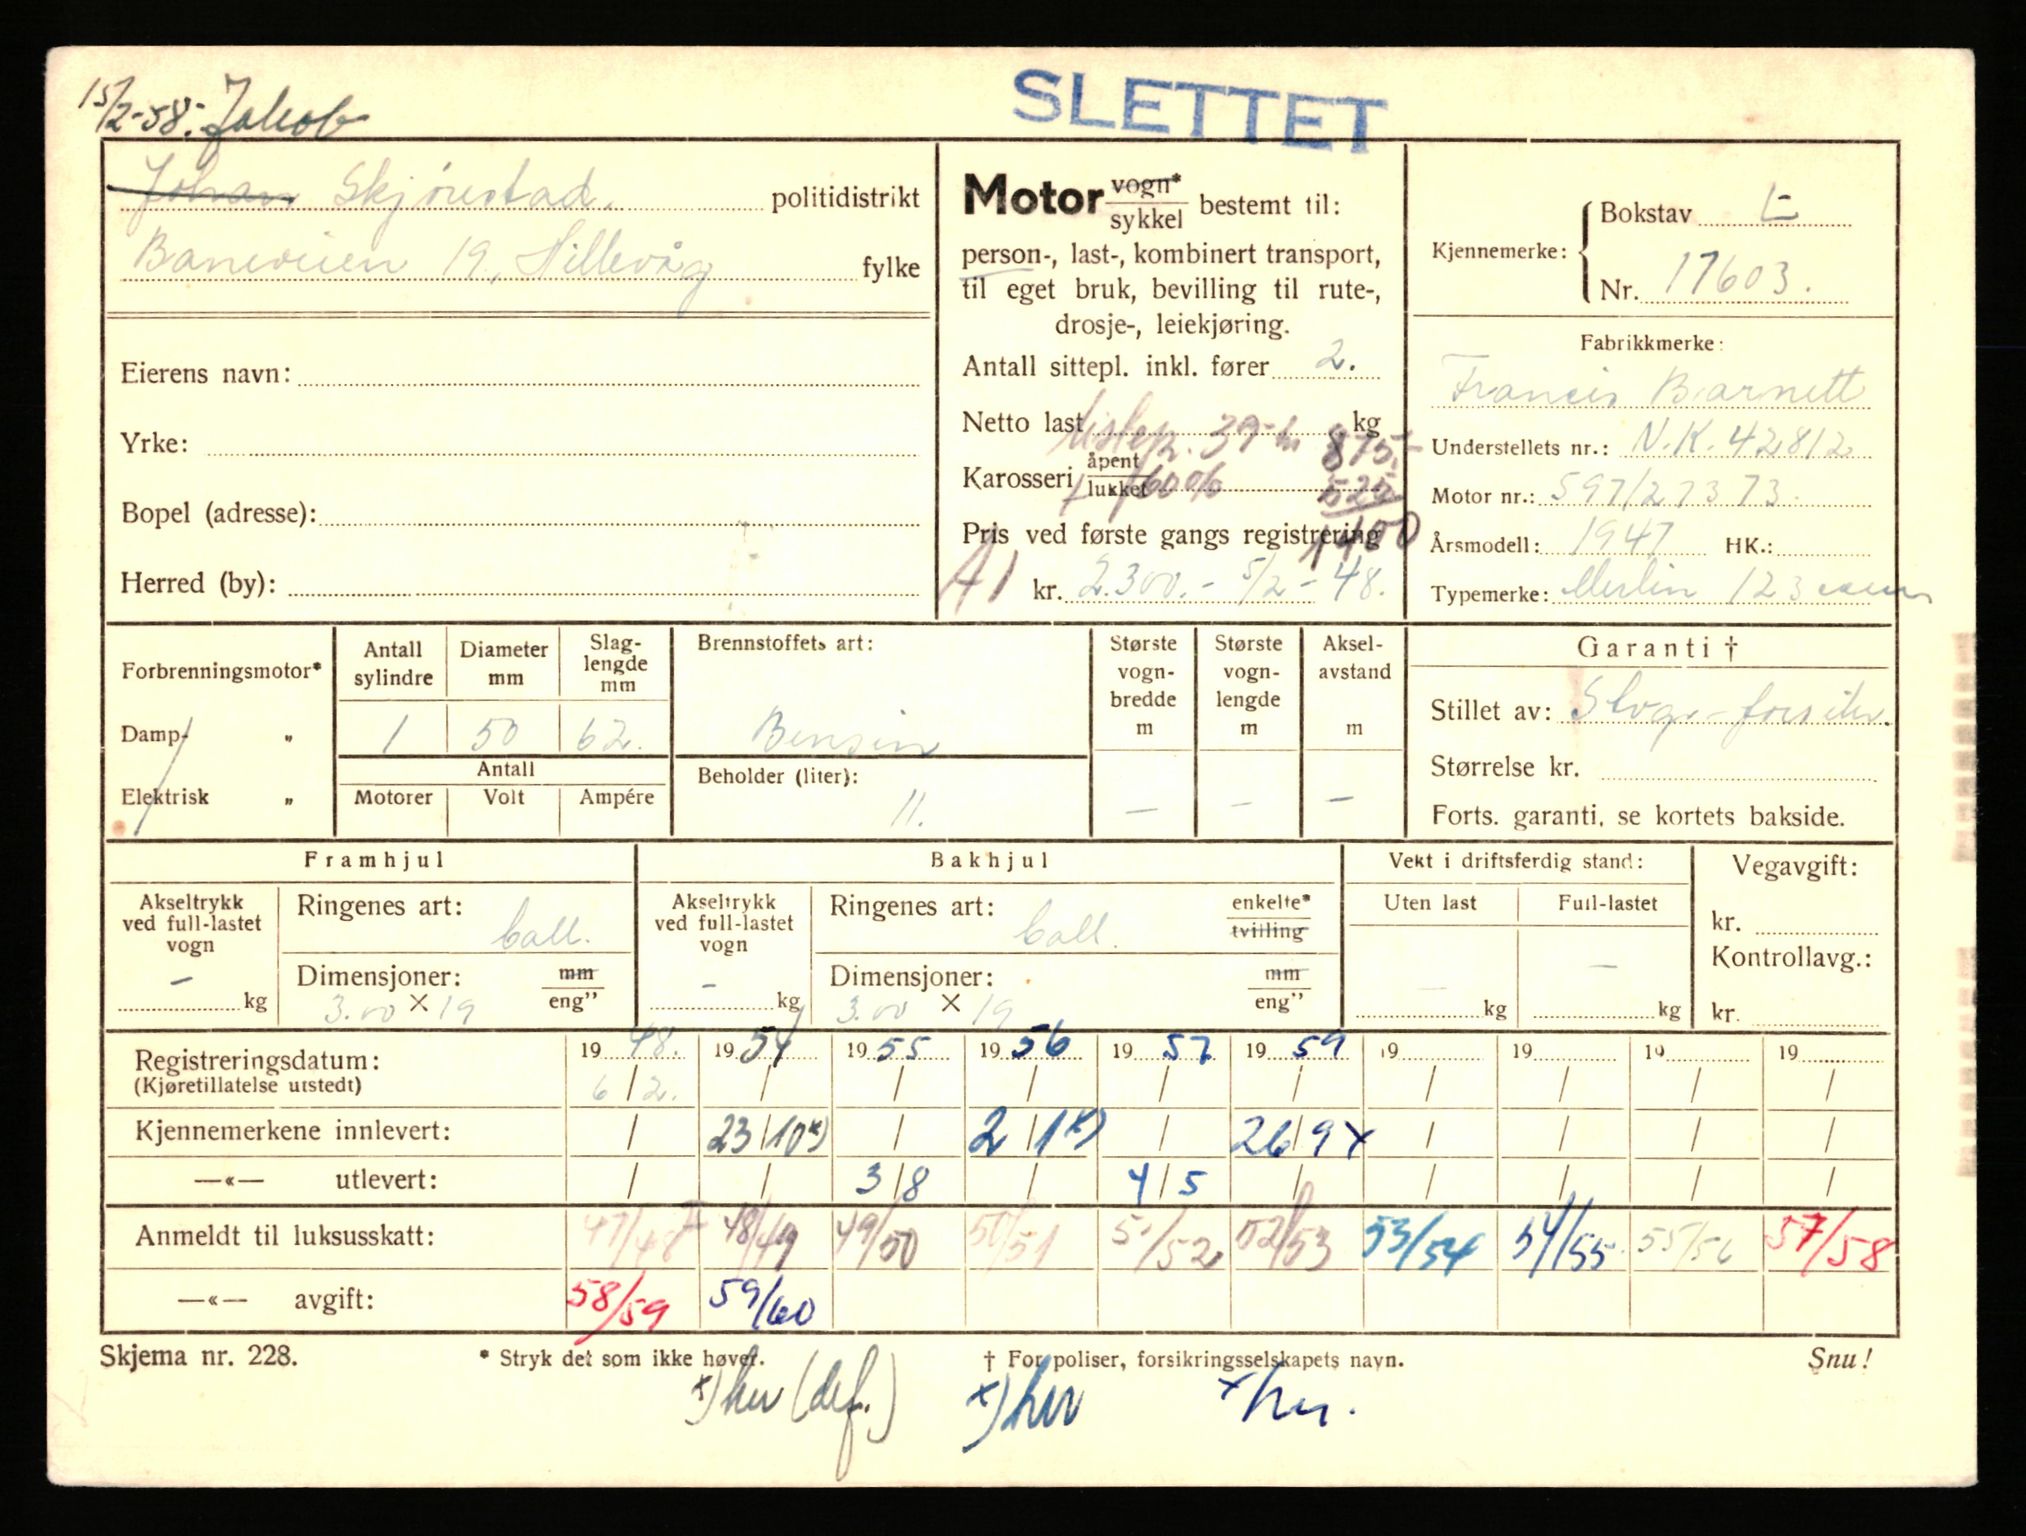 15/2-58. Jakob
SLETTET
Johan Skjørestad. politidistrikt
Baneveien 19, Hillevåg fylke
Eierens navn:
Yrke:
Bopel (adresse):
Herred (by):
Motor vogn* sykkel bestemt til:
person-, last-, kombinert transport,
til eget bruk, bevilling til rute-,
drosje-, leiekjøring.
Antall sittepl. inkl. fører 2.
Netto last kg
39 875.-
Karosseri åpent lukket
60% 525
Pris ved første gangs registrering
1400
A1 kr. 2.300.- 5/2-48.
Kjennemerke:
Bokstav L
Nr. 17603.
Fabrikkmerke:
Francis Barnett
Understellets nr.: N.K. 42812
Motor nr.: 597/27373.
Årsmodell: 1947 HK.:
Typemerke: Merlin 123
Forbrenningsmotor*
Damp- „
Elektrisk „
Antall sylindre
Diameter mm
Slag-lengde mm
1 50 62.
Antall
Motorer Volt Ampére
Brennstoffets art:
Bensin
Beholder (liter):
11.
Største vogn-bredde m
Største vogn-lengde m
Aksel-avstand m
— — —
Garanti †
Stillet av:
Størrelse kr.
Forts. garanti, se kortets bakside.
Framhjul
Akseltrykk ved full-lastet vogn
— kg
Ringenes art: ball.
Dimensjoner: mm eng”
3.00 × 19
Bakhjul
Akseltrykk ved full-lastet vogn
— kg
Ringenes art: ball. enkelte* tvilling
Dimensjoner: mm eng”
3.00 × 19
Vekt i driftsferdig stand:
Uten last Full-lastet
— —
kg kg
Vegavgift:
kr.
Kontrollavg.:
kr.
Registreringsdatum: 19 48. 19 54 19 55 19 56 19 57 19 59 19 19 19 19
(Kjøretillatelse utstedt) 6/2. / / / / / / / / /
Kjennemerkene innlevert: / 23/10 x) / 2/1 x) / 26/9 x / / / /
—«— utlevert: / / 3/8 / 4/5 / / / / /
Anmeldt til luksusskatt: 47/48 48/49 49/50 50/51 51/52 52/53 53/54 54/55 55/56 57/58
—«— avgift: 58/59 59/60
Skjema nr. 228.
* Stryk det som ikke høver.
† For poliser, forsikringsselskapets navn.
Snu!
x) her (def.) x) her x her.